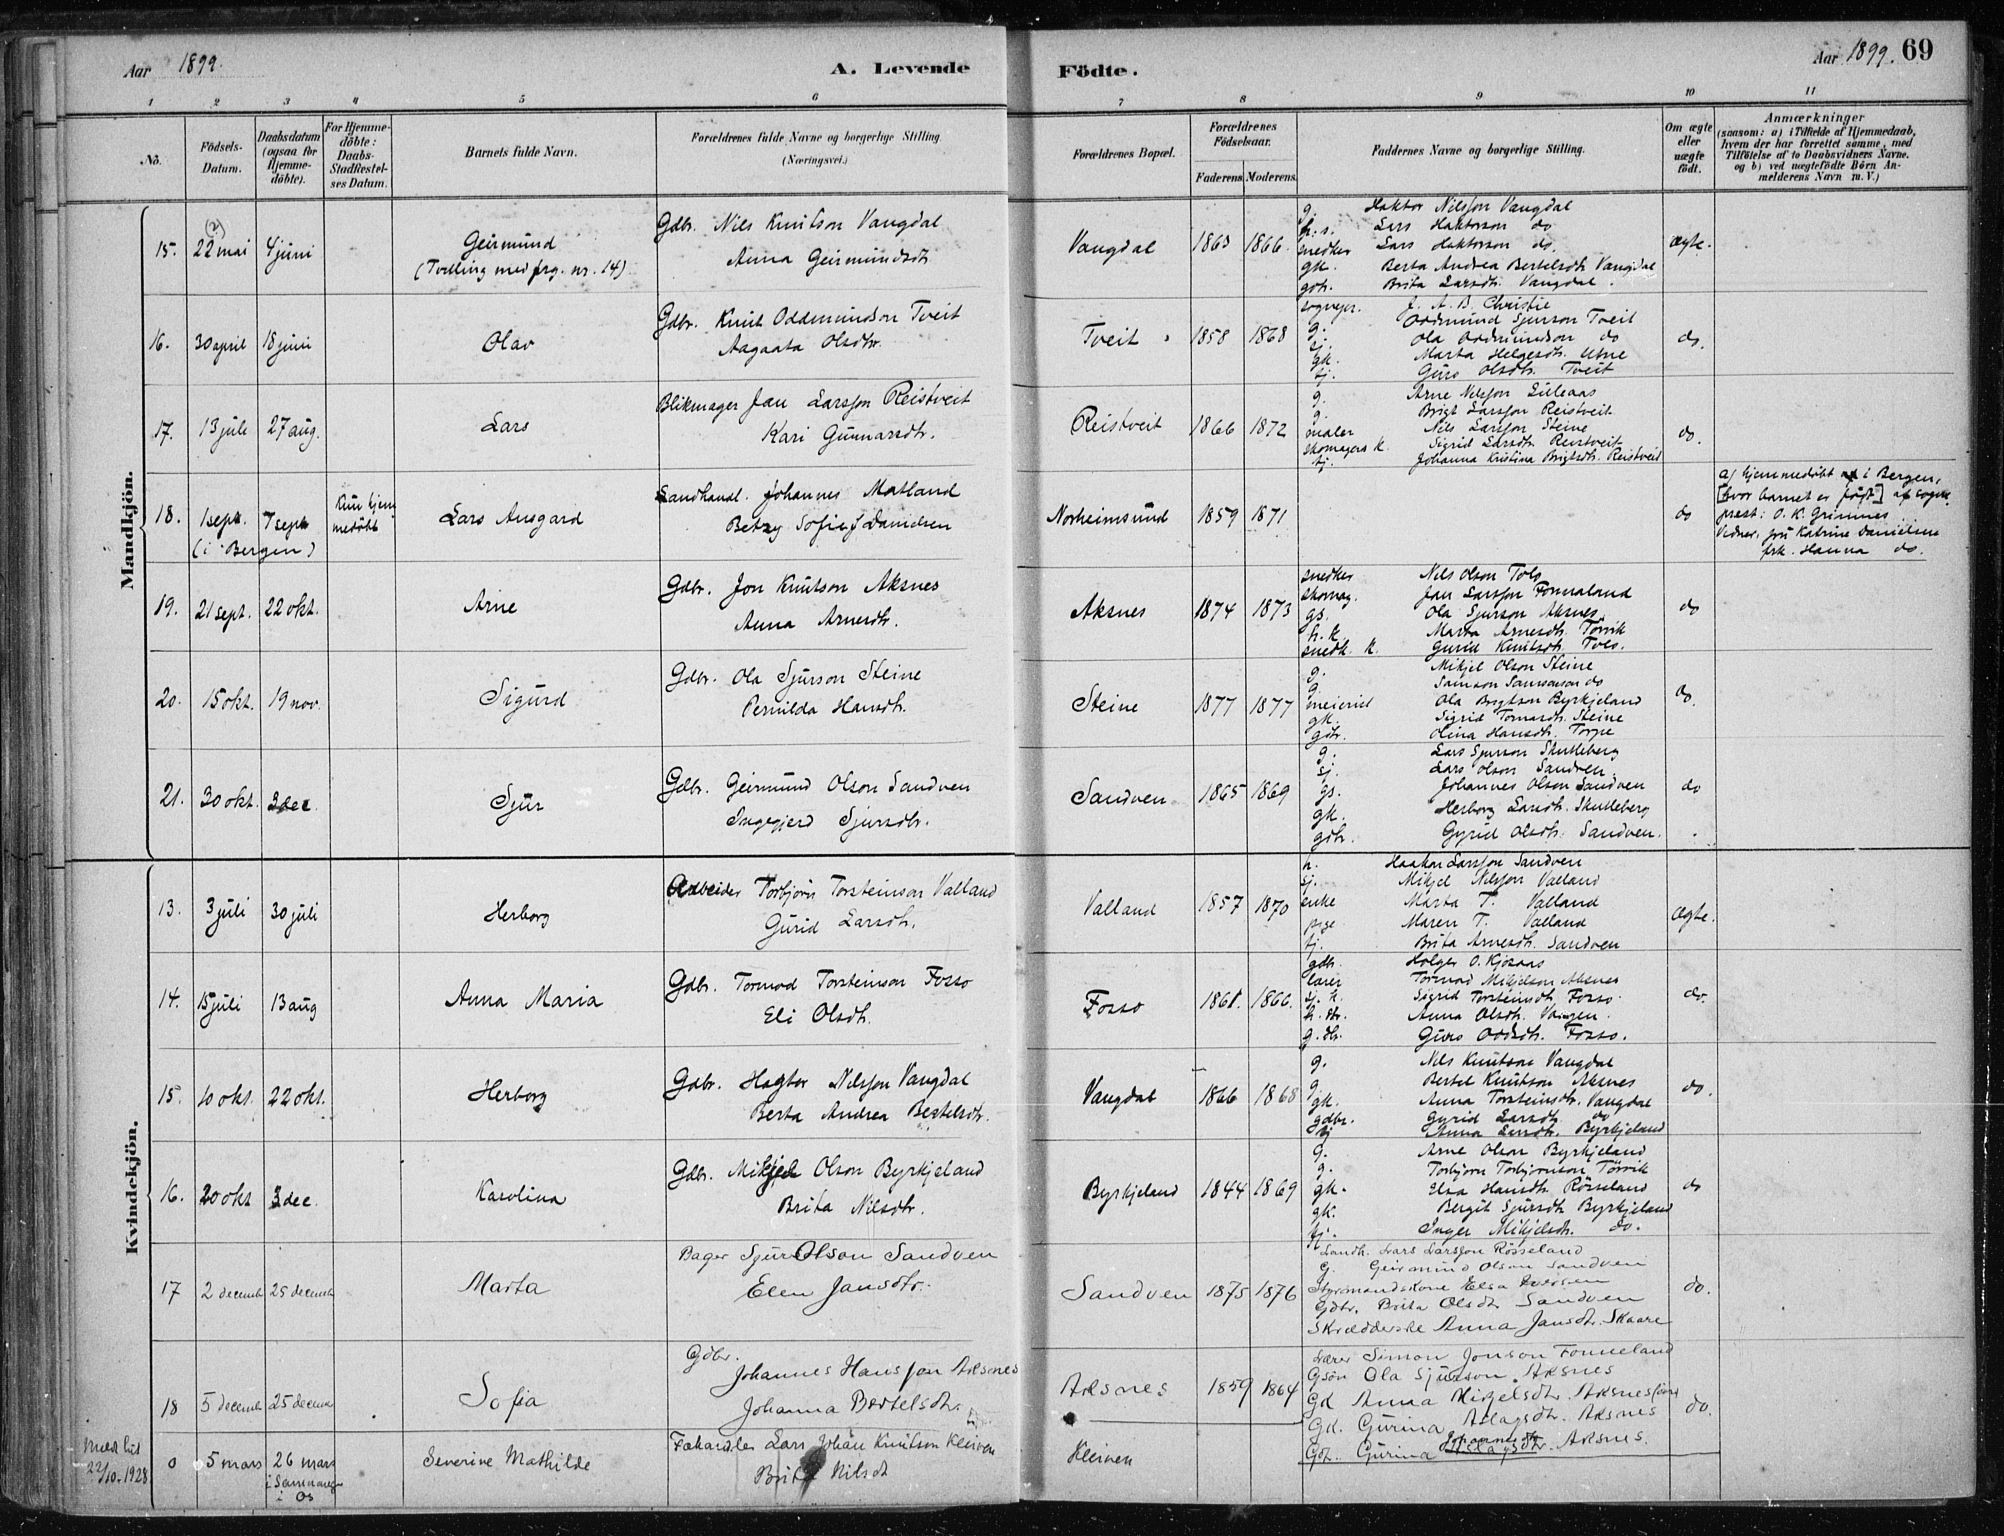 Aar 1899.
A. Levende
Födte.
Aar 1899. 69
1 2 3 4 5 6 7 8 9 10 11
No.
Födsels-Datum.
Daabsdatum (ogsaa for Hjemme-döbte).
For Hjemme-döbte: Daabs-Stadfæstel-ses Datum.
Barnets fulde Navn.
Forældrenes fulde Navne og borgerlige Stilling. (Næringsvei.)
Forældrenes Bopæl.
Forældrenes Födselsaar.
Faderens. Moderens.
Faddernes Navne og borgerlige Stilling.
Om ægte eller uægte födt.
Anmærkninger
(saasom: a) i Tilfælde af Hjemmedaab, hvem der har forrettet samme, med Tilföielse af to Daabsvidners Navne, og b) ved uægtefödte Börn Anmelderens Navn m. V.)
Mandkjön.
15. 22 mai (2) 4 juni
Geirmund
(Tvilling med frg. nr. 14)
Gdbr. Nils Knutson Vangdal
Anna Geirmundsdtr
Vangdal 1863 1866
g. Haktor Nilsson Vangdal
Lars Haktorson do
snedker Lars Haktorson do.
gk. Berta Andrea Bertelsdtr Vangdal
gdtr. Brita Larsdtr. Vangdal.
ægte.
16. 30 april 18 juni
Olav
Gdbr. Knut Oddmundson Tveit
Aagaata Olsdtr.
Tveit 1858 1868
sogneprs. J. A. B. Christie
g. Oddmund Sjurson Tveit
sj. Ola Oddmundson do
gk. Marta Helgesdtr. Utne
tj. Guro Olsdtr. Tveit
do.
17. 13 juli 27 aug.
Lars
Blikmager Jan Larsson Reistveit
Kari Gunnarsdtr.
Reistveit 1866 1872
g. Arne Nilsson
g. Brigt Larsson Reistveit
maler Nils Larsson Steine
skomagers k. Sigrid Larsdtr. Reistveit
tj. Johanna Kristina Brigtsdtr. Reistveit
do.
18. 1 sept. 7 sept
(i Bergen)
Kun hjemmedöbt
Lars Ansgard
Landhandl. Johannes Matland
Betzy Sofie J Danielsen
Norheimsund 1859 1871
do
a) hjemmedöbt i Bergen,
[hvor barnet er födt] af sogneprest: O. K. Grimnes
Vidner, fru Katrine Danielsen
frk. Hanna do.
19. 21 sept. 22 okt.
Arne
Gdbr. Jon Knutson Aksnes
Anna Arnesdtr.
Aksnes 1874 1873
snedker Nils Olson Tolo
skomag. Jan Larsson Fonnaland
gs. Ola Sjurson Aksnes
h.k. Marta Arnesdtr. Törvik
snedk. k. Gurid Knutsdtr. Tolo.
do
20. 15 okt. 19 nov.
Sigurd
Gdbr. Ola Sjurson Steine
Pernilda Hansdtr.
Steine 1877 1877
g. Mikjel Olson Steine
g Samson Samsonson do
meierist Ola Brigtson Byrkjeland
gk. Sigrid Tormodsdtr. Steine
gdtr. Olina Hansdtr. Torpe
do.
21. 30 okt. 3 dec
Sjur
Gdbr. Geirmund Olson Sandven
Ingegjerd Sjursdtr.
Sandven 1865 1869
g. Lars Sjurson Skutleberg
sj. Lars Olson Sandven
gs. Johannes Olson Sandven
gk. Herborg Larsdtr. Skutleberg
gdtr. Gyrid Olsdtr. Sandven.
do
Kvindekjön.
13. 3 juli 30 juli
Herborg
Arbeider Torbjörn Torsteinson Valland
Gurid Larsdtr.
Valland 1857 1870
h. Haakon Larsson Sandven
sj. Mikjel Nilsson Valland
enke Marta T. Valland
pge Maren T. Valland
tj. Brita Arnesdtr. Sandven
ægte.
14. 15 juli 13 aug
Anna Maria
Gdbr. Tormod Torsteinson Fosso
Eli Olsdtr.
Fosso 1861. 1866.
gdbr. Holger O. Kjosaas
lærer Tormod Mikjelson Aksnes
sj. k. Sigrid Torsteinsdtr. Fosso
h. dtr. Anna Olsdtr. Vangen.
g. dtr. Guro Oddsdtr. Fosso.
do.
15. 10 okt. 22 okt.
Herborg
Gdbr. Hagtor Nilsson Vangdal
Berta Andrea Bertelsdtr.
Vangdal 1866 1868
g. Nils Knutson Vangdal
g Bertel Knutson Aksnes
gk. Anna Torsteinsdtr. Vangdal
gdtr. Gyrid Larsdtr do
tj Anna Larsdtr. Byrkjeland
do.
16. 20 okt 3 dec.
Karolina
Gdbr. Mikjel Olson Byrkjeland
Brita Nilsdtr.
Byrkjeland 1844 1869
g. Arne Olson Byrkjeland
g. Torbjorn Torbjornson Törvik
gk. Elsa Hansdtr. Rösseland
gk. Bergit Sjursdtr Byrkjeland
tj. Inger Mikjelsdtr. do.
do
17 2 decemb 25 decemb
Marta
Bager Sjur Olson Sandven
Elen Jansdtr.
Sandven 1875 1876
Landh. Lars Larsson Rösseland
G. Geirmund Olson Sandven
Styrmandskone Elsa Iversen
Gdtr. Brita Olsdtr Sandven
Skrædderske Anna Jansdtr. Skaare
do.
18 5 decemb 25 decemb
Sofia
Gdbr.
Johannes Hansson Aksnes
Johanna Bertelsdtr.
Aksnes 1859 1864
Lærer Simon Jonson Fonneland
Gsön Ola Sjurson Aksnes
Gd Anna Mikjelsdtr. Aksnes
Gk. Gurina Aslagsdtr. Aksnes
Gdt. Gurina Johannesdtr Aslagsdtr. Aksnes.
do.
Meldt hid
22/10. 1928
0 5 mars 26 mars
i Samnanger
i Os
Severine Mathilde
Fæhandler Lars Johan Knutson Kleiven
Brita Nilsdt
Kleiven